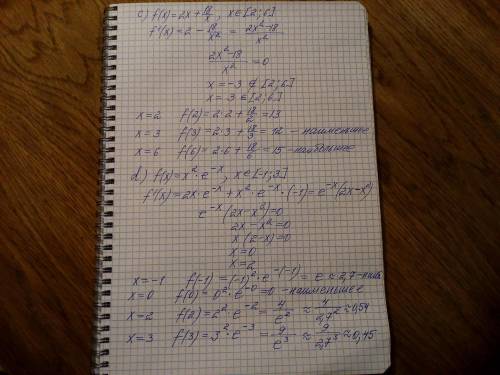 c) f(x)=2x+18/x, x∈[2;6]
f'(x)=2-18/x²=(2x²-18)/x²
(2x²-18)/x²=0
x=-3∉[2;6]
x=3∈[2;6]
x=2 f(2)=2·2+18/2=13
x=3 f(3)=2·3+18/3=12 - наименьшее
x=6 f(6)=2·6+18/6=15 - наибольшее
d) f(x)=x²·e^(-x), x∈[-1;3]
f'(x)=2x·e^(-x)+x²·e^(-x)·(-1)=e^(-x)(2x-x²)
e^(-x)(2x-x²)=0
2x-x²=0
x(2-x)=0
x=0
x=2
x=-1 f(-1)=(-1)²·e^(-(-1))=e≈2,7-наиб
x=0 f(0)=0²·e^(-0)=0 - наименьшее
x=2 f(2)=2²·e^(-2)=4/e²≈4/2,7²≈0,54
x=3 f(3)=3²·e^(-3)=9/e³≈9/2,7³≈0,45